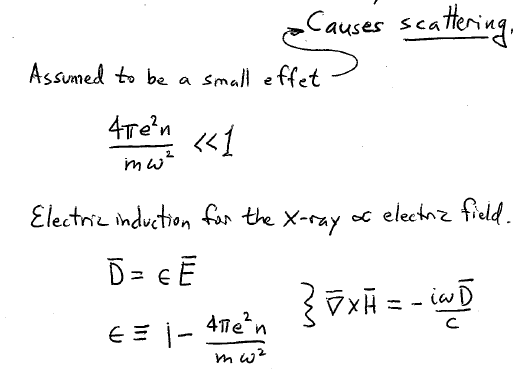 Causes scattering.
Assumed to be a small effet
4πe²n / mω² <<1
Electric induction for the X-ray ∝ electric field.
D̄ = ϵ Ē
ϵ ≡ 1 - 4πe²n / mω² } ∇̄ × H̄ = - iωD̄ / c